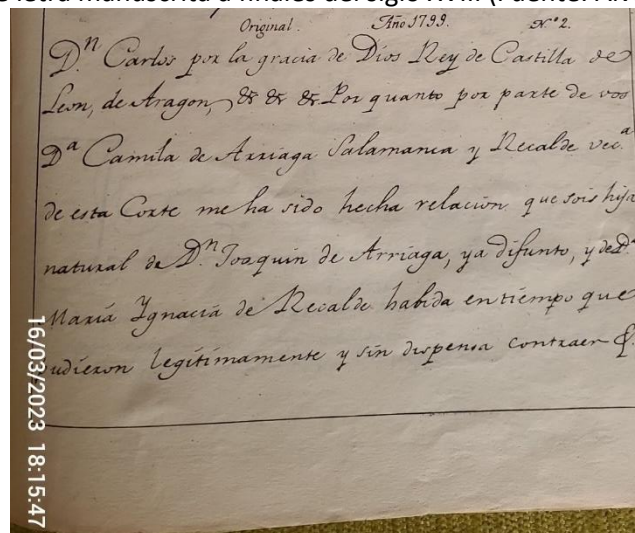 e letra manuscrita a finales del siglo XVIII (Fuente:
Original. Año 1799. N.º 2.
D.n Carlos por la gracia de Dios Rey de Castilla de
Leon, de Aragon, &c &c &c Por quanto por parte de vos
D.a Camila de Arriaga Salamanca y Recalde vec.a
de esta Corte me ha sido hecha relación que sois hija
natural de D.n Joaquin de Arriaga, ya difunto, y de D.a
María Ygnacia de Recalde habida en tiempo que
pudieron legítimamente y sin dispensa contraer &.
16/03/2023 18:15:47